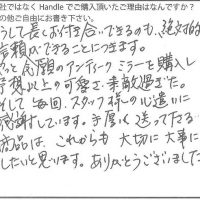 社ではなく Handle でご購入頂いたご理由はなんですか？
の他ご自由にお書き下さい。
うして長くお付き合いできるのも、絶対的
信頼ができることにつきます。
っと念願のアンティークミラーを購入し
予想以上の可愛さ、素敵過ぎた。
そして毎回、スタッフ様の心遣いに
感謝しています。手厚く送って下さる
商品は、これからも大切に大事に
したいと思います。ありがとうございました